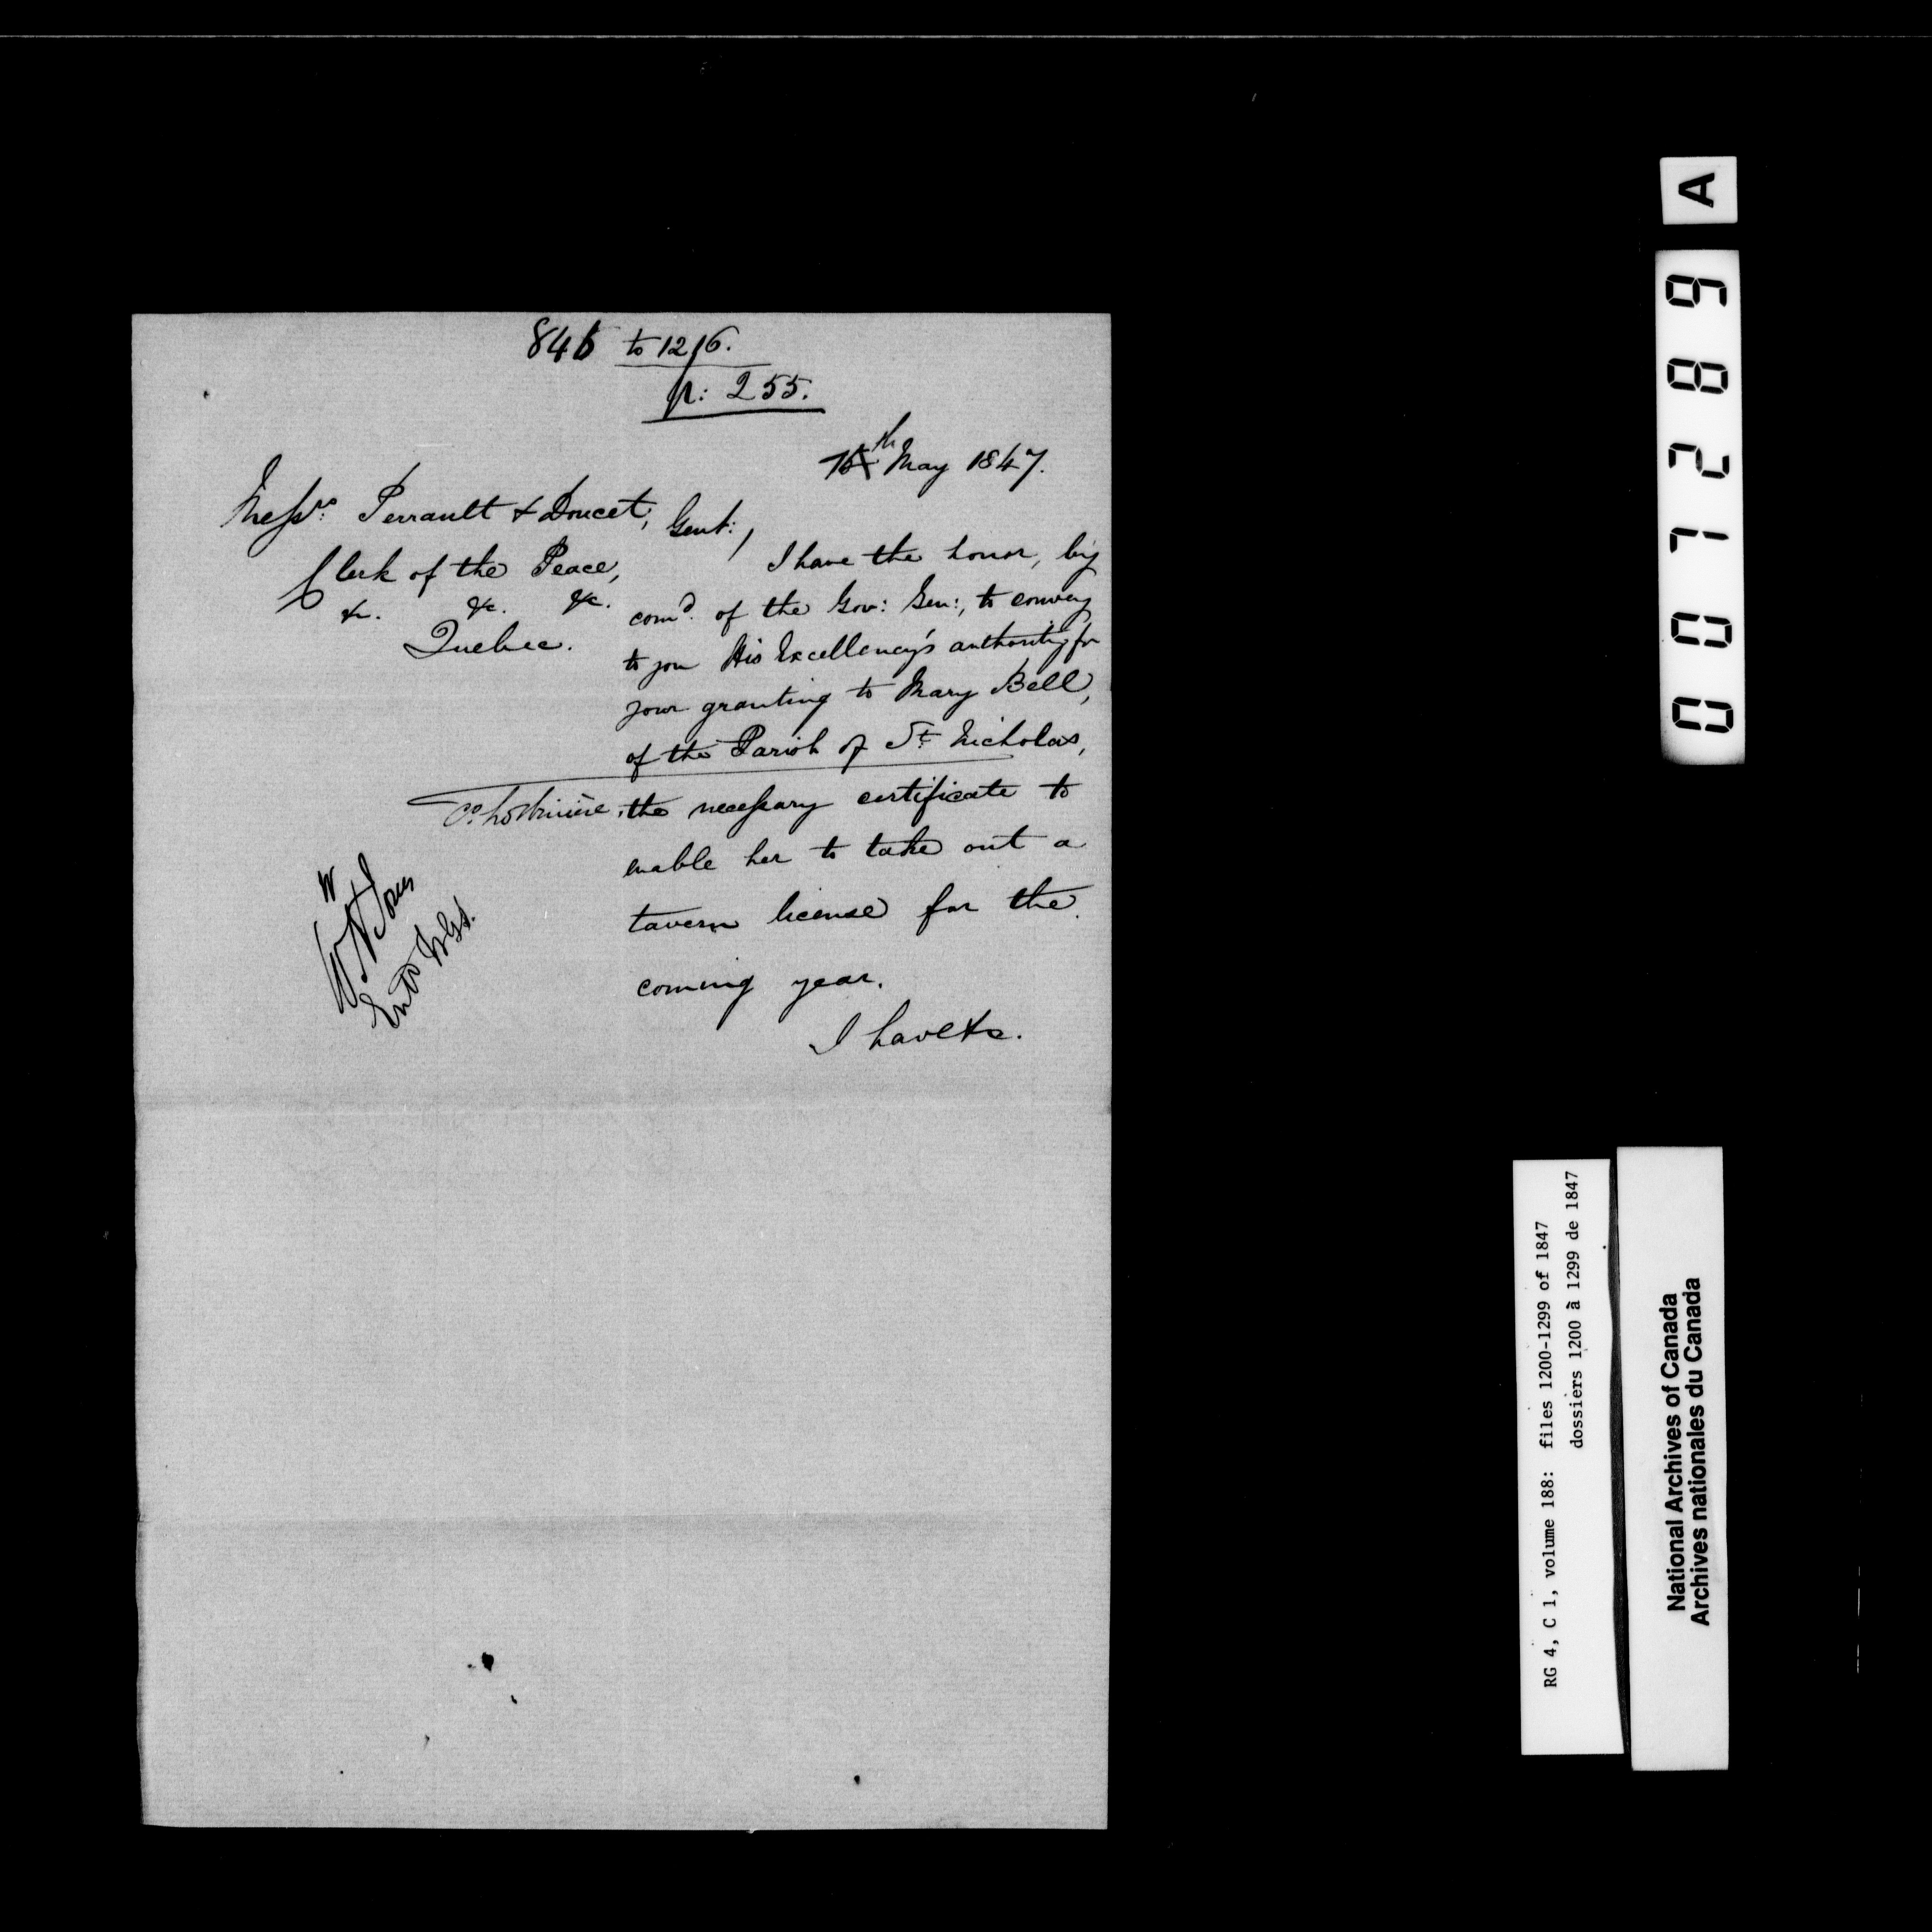 846 to 1216.
p: 255.
15th May 1847.
Messrs: Perrault & Doucet,
Clerk of the Peace,
&c. &c. &c.
Quebec.
Gent:,
I have the honor, by
comd. of the Gov: Gen:, to convey
to you His Excellency's authority for
your granting to Mary Bell,
of the Parish of St. Nicholas,
Co. Lotbinière. the necessary certificate to
enable her to take out a
tavern license for the
coming year.
I have &c.
A
007289
RG 4, C 1, volume 188: files 1200-1299 of 1847
dossiers 1200 à 1299 de 1847
National Archives of Canada
Archives nationales du Canada